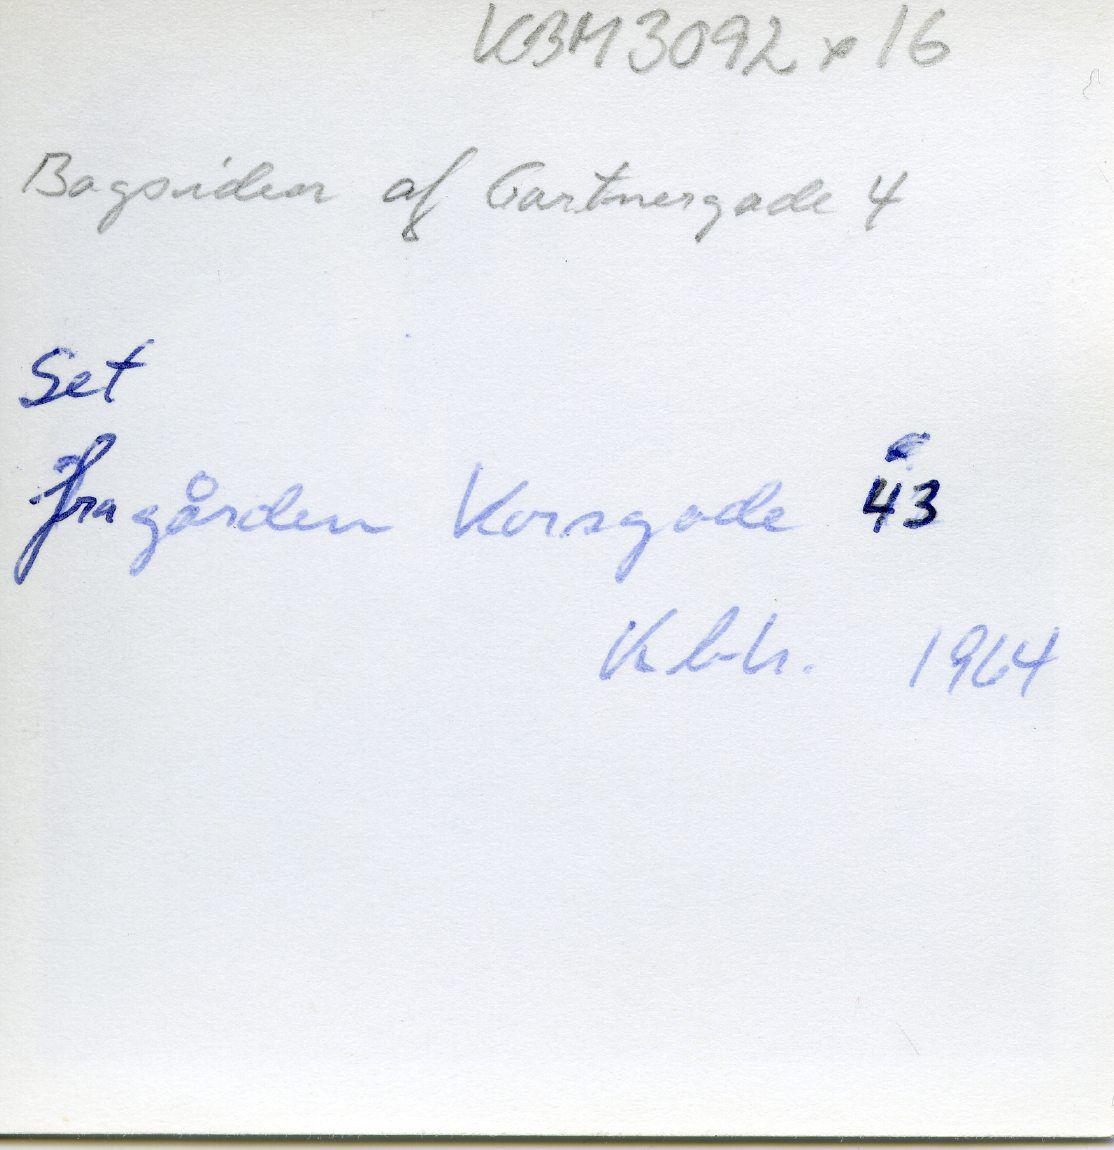 KBM3092x16
Bagsiden af Gartnergade 4
Set
fra gården Korsgade 43
Kbh. 1964